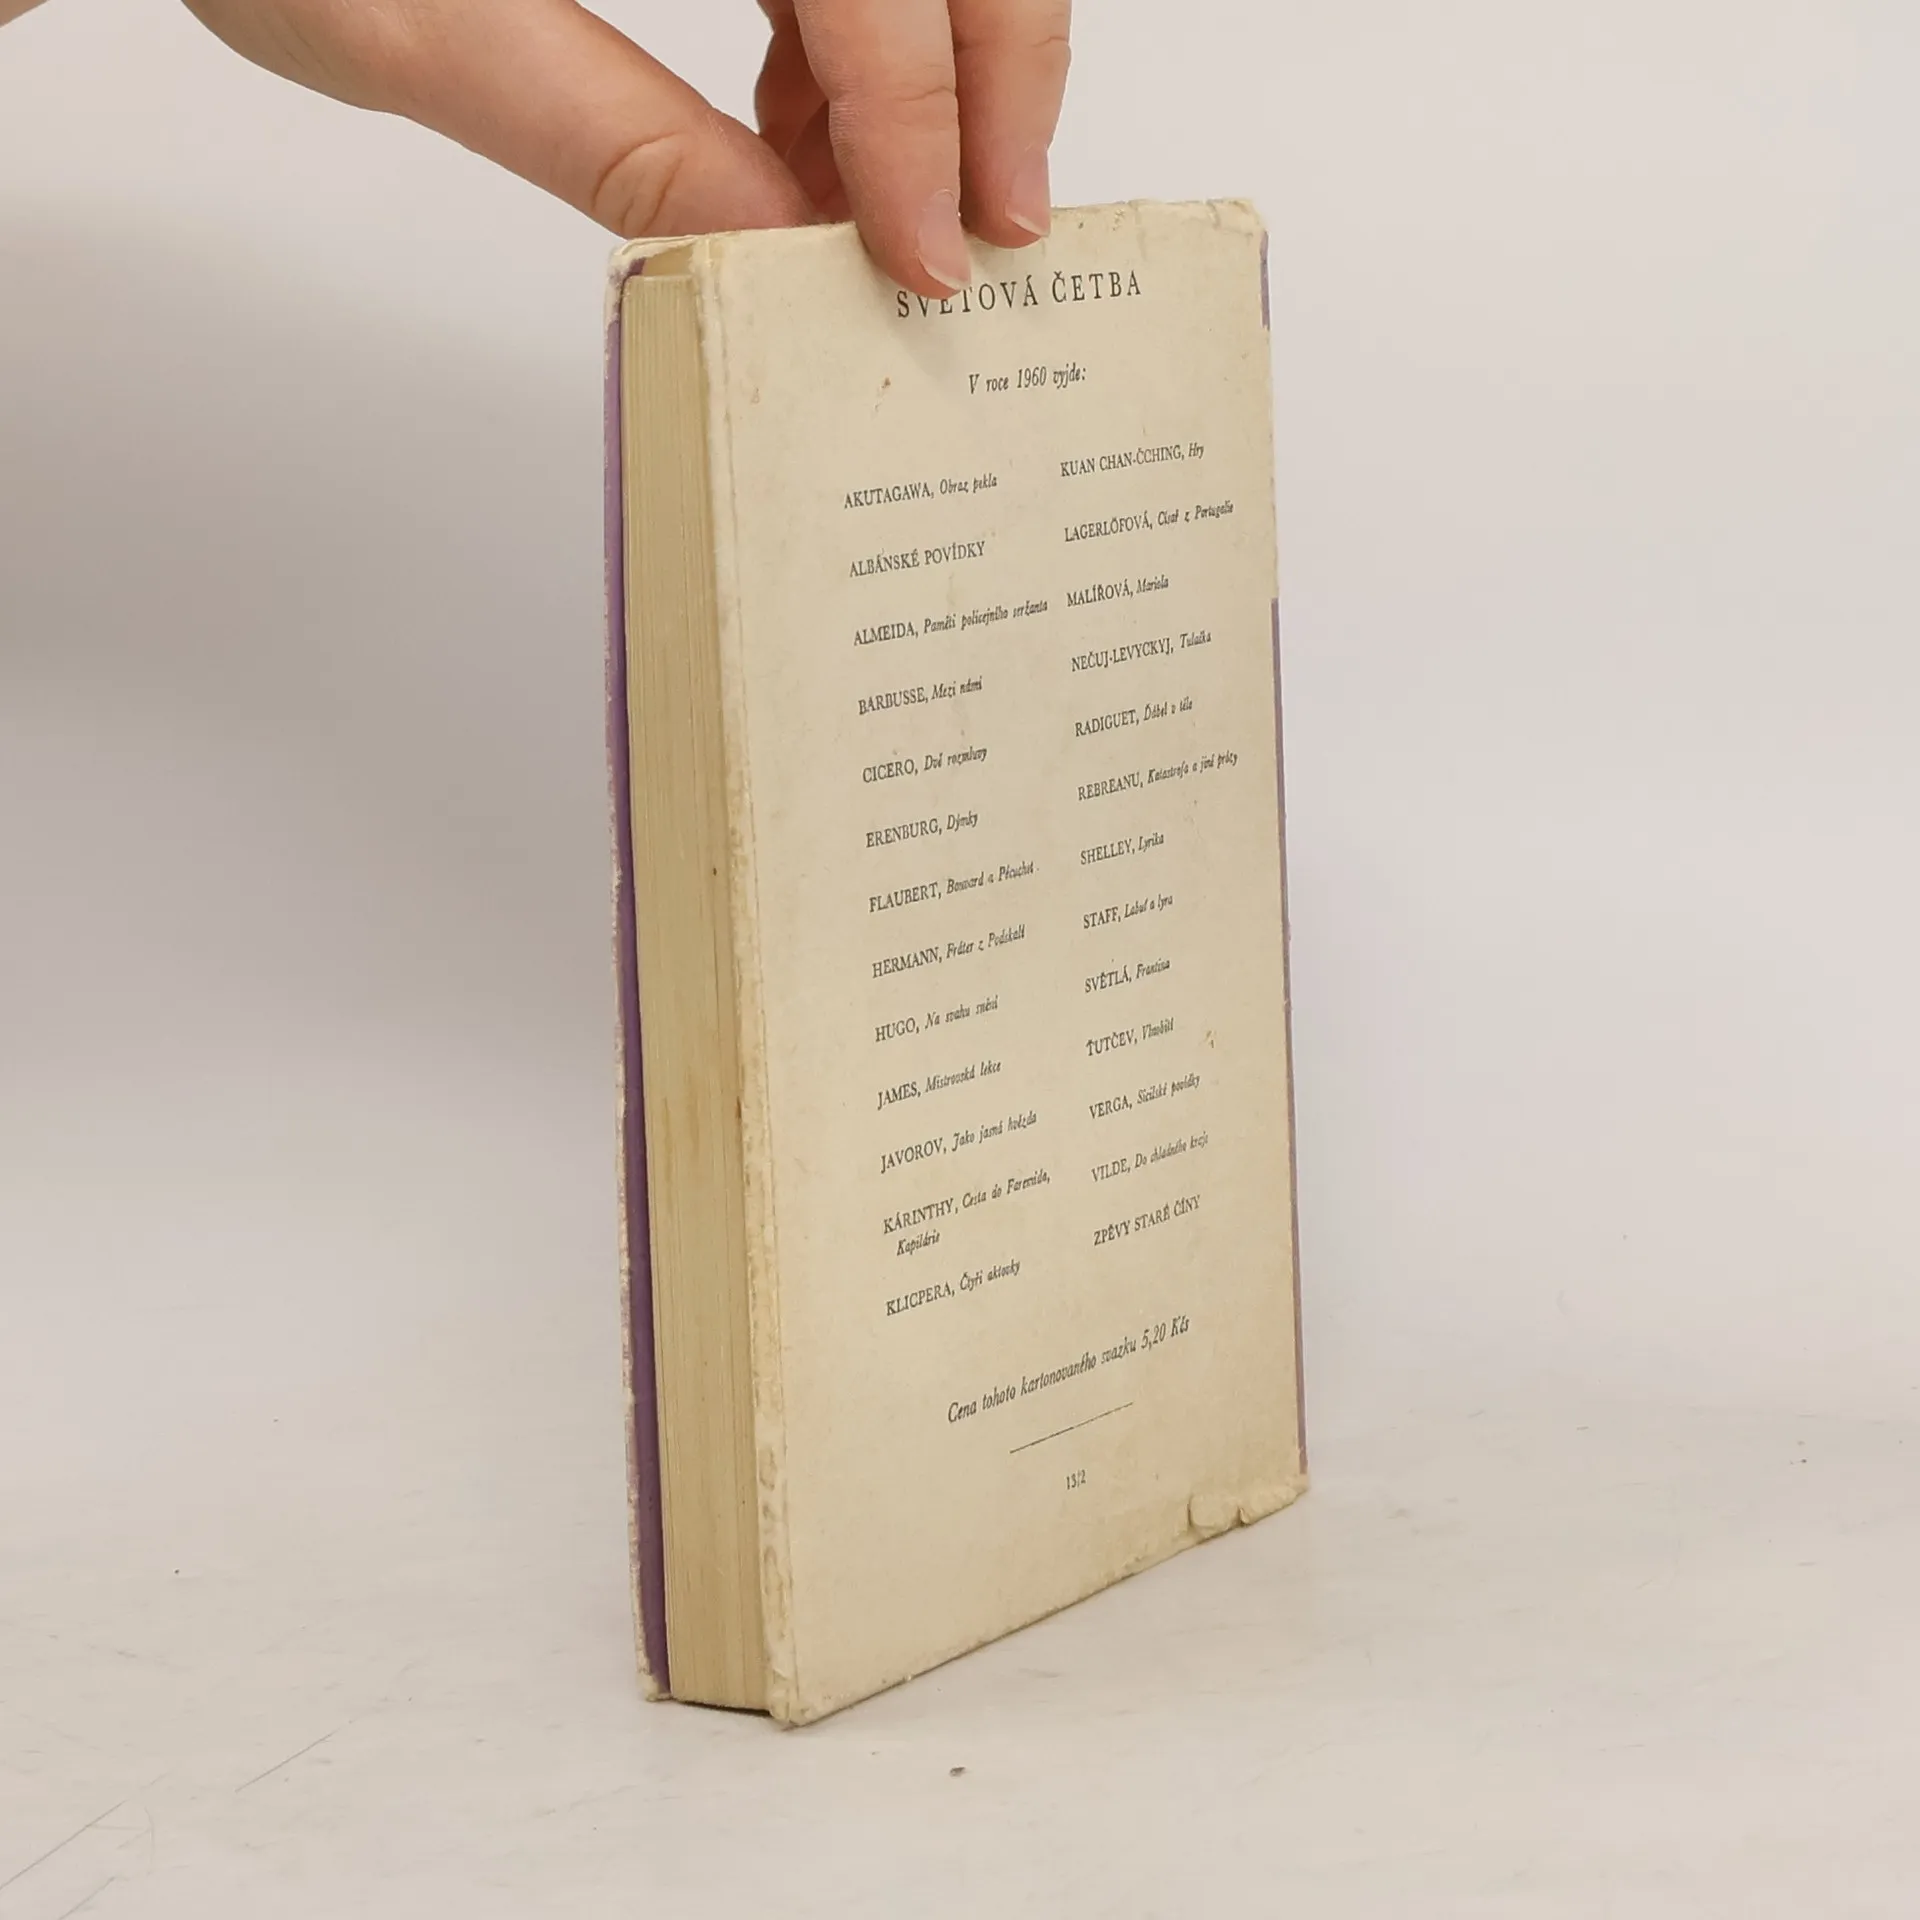 SVĚTOVÁ ČETBA
V roce 1960 vyjde:
AKUTAGAWA, Obraz pekla
ALBÁNSKÉ POVÍDKY
ALMEIDA, Paměti policejního seržanta
BARBUSSE, Mezi námi
CICERO, Dvě rozmluvy
ERENBURG, Dýmky
FLAUBERT, Bouvard a Pécuchet
HERMANN, Fráter z Podskalí
HUGO, Na svahu snění
JAMES, Mistrovská lekce
JAVOROV, Jako jasná hvězda
KÁRINTHY, Cesta do Faremida,
Kapilárie
KLICPERA, Čtyři aktovky
KUAN CHAN-ČCHING, Hry
LAGERLÖFOVÁ, Císař z Portugalie
MALÍŘOVÁ, Mariola
NEČUJ-LEVYCKYJ, Tulačka
RADIGUET, Ďábel v těle
REBREANU, Katastrofa a jiné prózy
SHELLEY, Lyrika
STAFF, Labuť a lyra
SVĚTLÁ, Frantina
ŤUTČEV, Vlnobití
VERGA, Sicilské povídky
VILDE, Do chladného kraje
ZPĚVY STARÉ ČÍNY
Cena tohoto kartonovaného svazku 5,20 Kčs
13/2